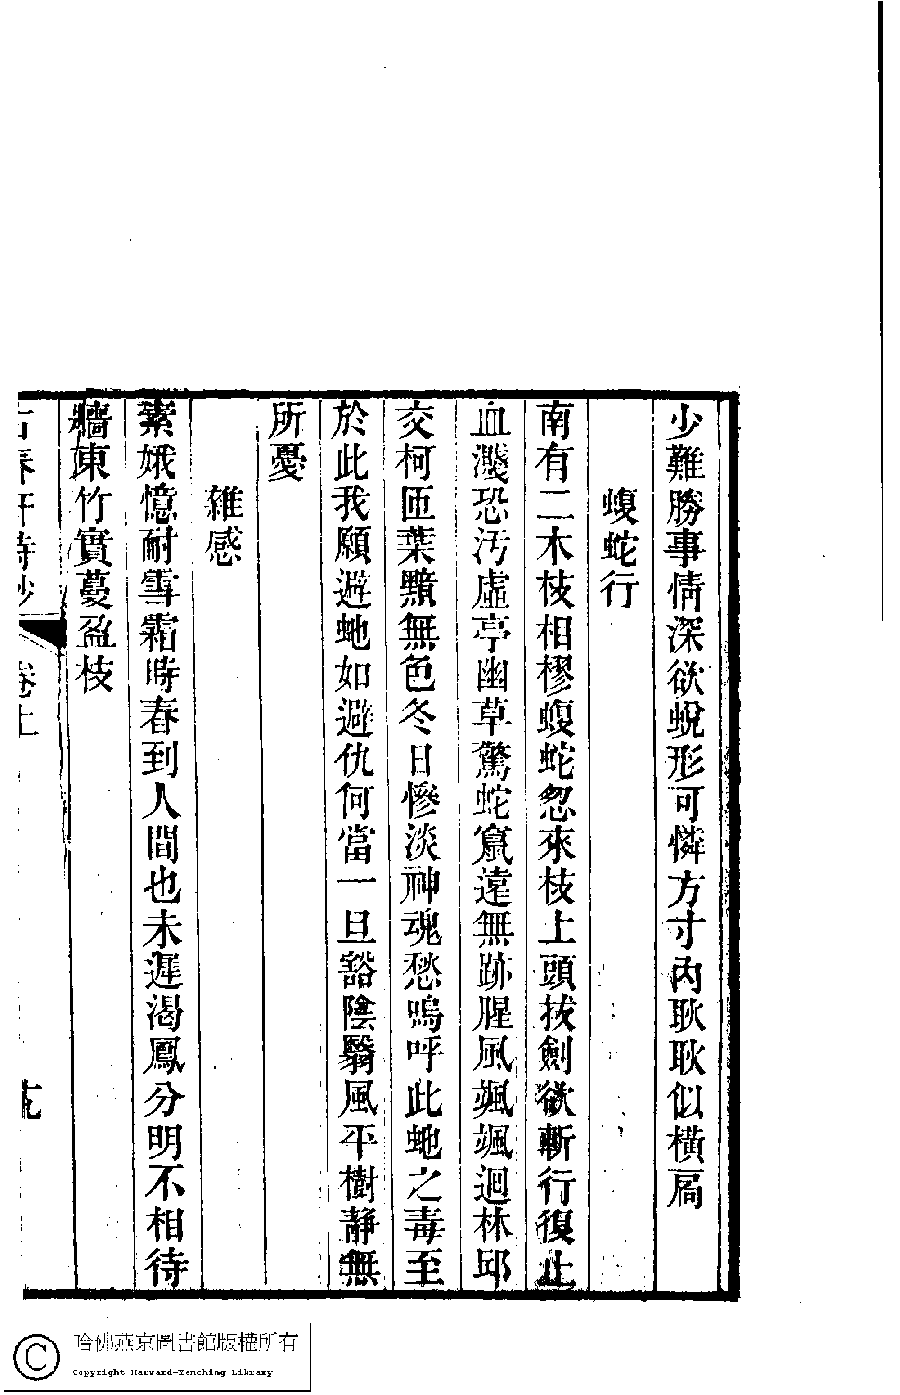 少難勝事情深欲蛻形可憐方寸內耿耿似橫扃
蝮蛇行
南有二木枝相樛蝮蛇忽來枝上頭拔劍欲斬行復止
血濺恐汚虛亭幽草驚蛇竄遠無跡腥風颯颯迴林邱
交柯匝葉黯無色冬日慘淡神魂愁嗚呼此虵之毒至
於此我願避虵如避仇何當一旦豁陰翳風平樹靜無
所憂
雜感
素娥憶耐雪霜時春到人間也未遲渴鳳分明不相待
牆東竹實蔓盈枝
卷上
哈佛燕京圖書館版權所有
Copyright Harvard-Yenching Library